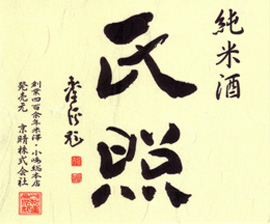 純米酒
氏照
創業四百余年米澤・小嶋総本店
発売元 京晴株式会社